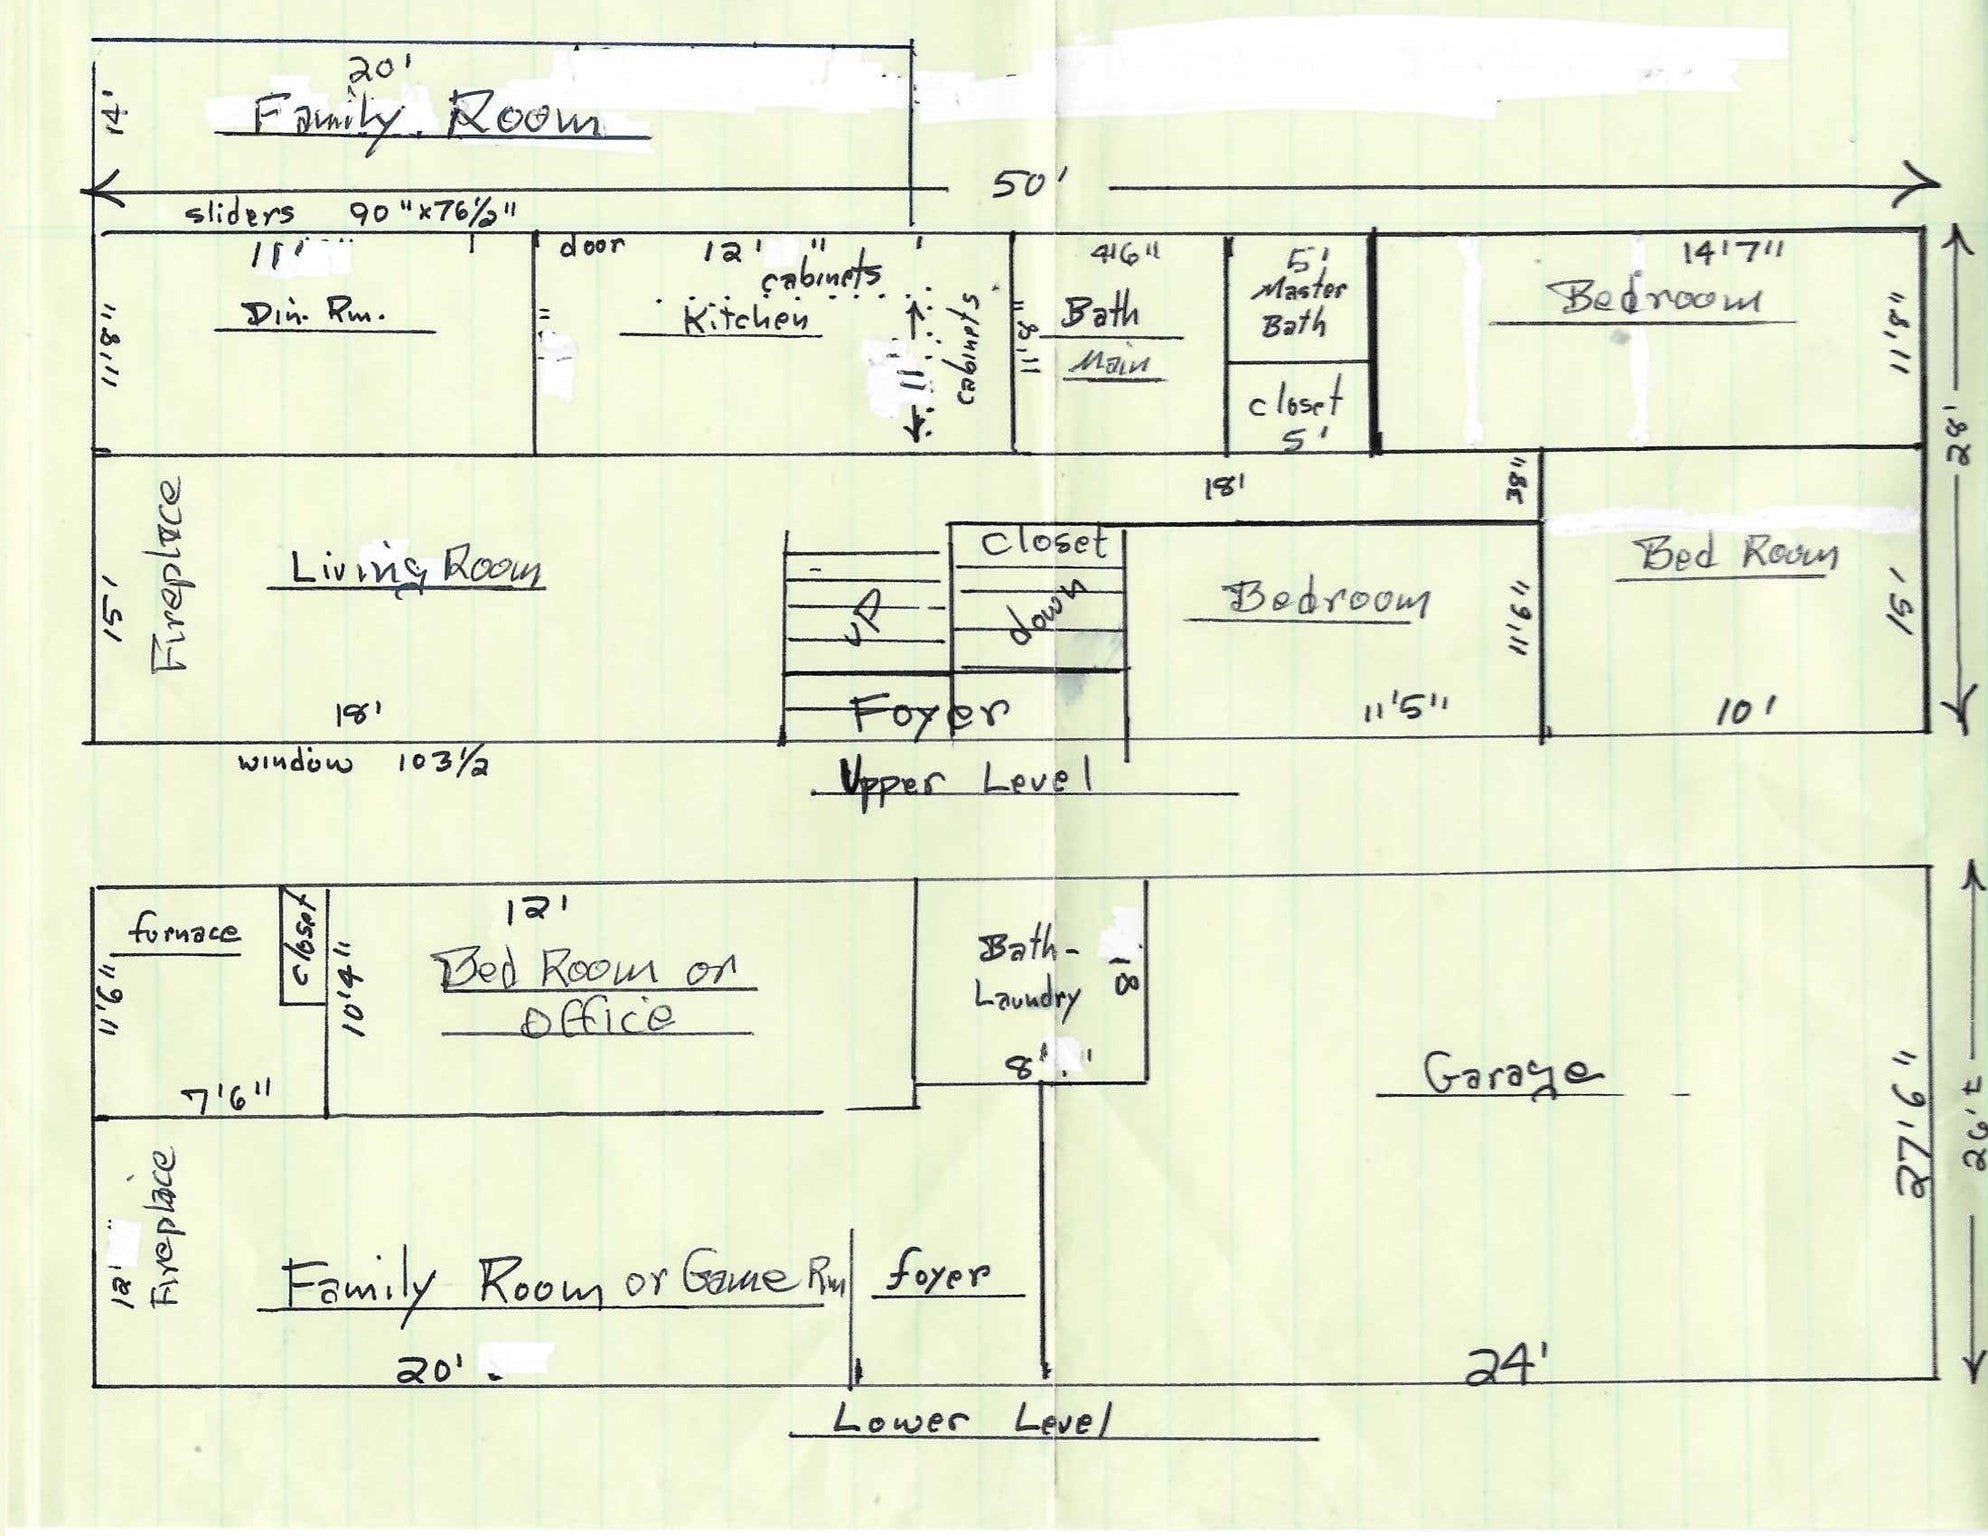 20'
14'
Family Room
50'
sliders 90"x76½"
11' "
door
12' "
cabinets
4'6"
5'
Master
Bath
14'7"
Bedroom
11'8"
Din. Rm.
11'8"
Kitchen
11'
cabinets
11'8"
Bath
Main
closet
5'
28'
18'
38"
Fireplace
15'
Living Room
18'
window 103½
UP
closet
down
Foyer
Bedroom
11'6"
11'5"
Bed Room
15'
10'
Upper Level
furnace
closet
11'6"
7'6"
12'
10'4"
Bed Room or
Office
Bath-
Laundry
8'
8' "
Garage
27'6"
26'
24'
Fireplace
12'
Family Room or Game Rm
20'
foyer
Lower Level